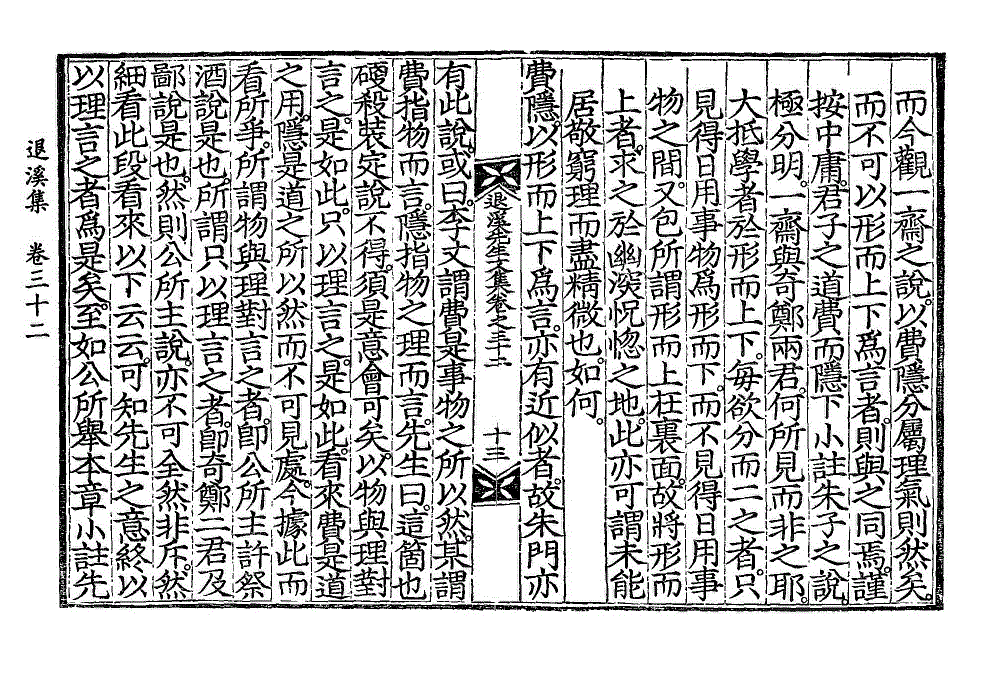 而今觀一齋之說。以費隱分屬理氣則然矣。
而不可以形而上下爲言者。則與之同焉。謹
按中庸。君子之道費而隱下小註朱子之說。
極分明。一齋與奇鄭兩君。何所見而非之耶。
大抵學者於形而上下。每欲分而二之者。只
見得日用事物爲形而下。而不見得日用事
物之間。又包所謂形而上在裏面。故將形而
上者。求之於幽深怳惚之地。此亦可謂未能
居敬窮理而盡精微也。如何。
費隱。以形而上下爲言。亦有近似者。故朱門亦
退溪先生文集卷之三十二
十三
有此說。或曰。李文謂費是事物之所以然。某謂
費指物而言。隱指物之理而言。先生曰。這箇也
硬殺裝定說不得。須是意會可矣。以物與理對
言之。是如此。只以理言之。是如此。看來費是道
之用。隱是道之所以然而不可見處。今據此而
看所爭。所謂物與理對言之者。卽公所主許祭
酒說是也。所謂只以理言之者。卽奇鄭二君及
鄙說是也。然則公所主說。亦不可全然非斥。然
細看此段看來以下云云。可知先生之意終以
以理言之者爲是矣。至如公所擧本章小註先
退溪集 卷三十二